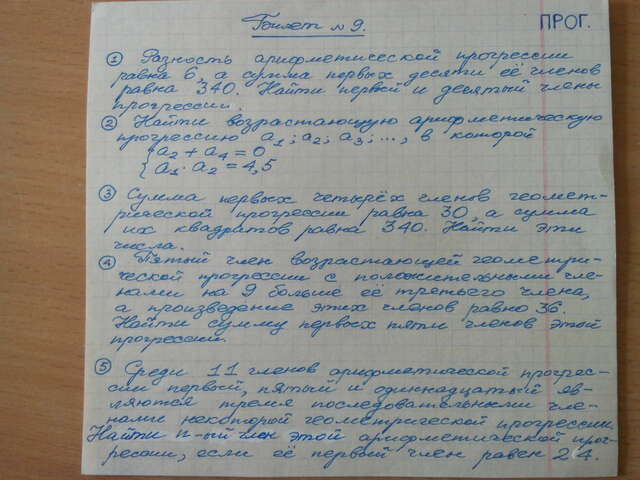 Билет №9.
ПРОГ.
① Разность арифметической прогрессии
равна 6, а сумма первых десяти её членов
равна 340. Найти первый и десятый члены
прогрессии.
② Найти возрастающую арифметическую
прогрессию a₁; a₂; a₃; ..., в которой
{a₂ + a₄ = 0
{a₁ · a₂ = 4,5
③ Сумма первых четырёх членов геомет-
рической прогрессии равна 30, а сумма
их квадратов равна 340. Найти эти
числа.
④ Пятый член возрастающей геометри-
ческой прогрессии с положительными чле-
нами на 9 больше её третьего члена,
а произведение этих членов равно 36.
Найти сумму первых пяти членов этой
прогрессии.
⑤ Среди 11 членов арифметической прогрес-
сии первый, пятый и одиннадцатый яв-
ляются тремя последовательными чле-
нами некоторой геометрической прогрессии.
Найти n-ый член этой арифметической прог-
рессии, если её первый член равен 24.